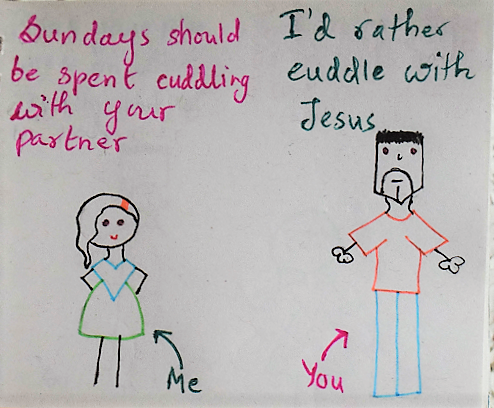 Sundays should
be spent cuddling
with your
partner
I'd rather
cuddle with
Jesus
Me
You